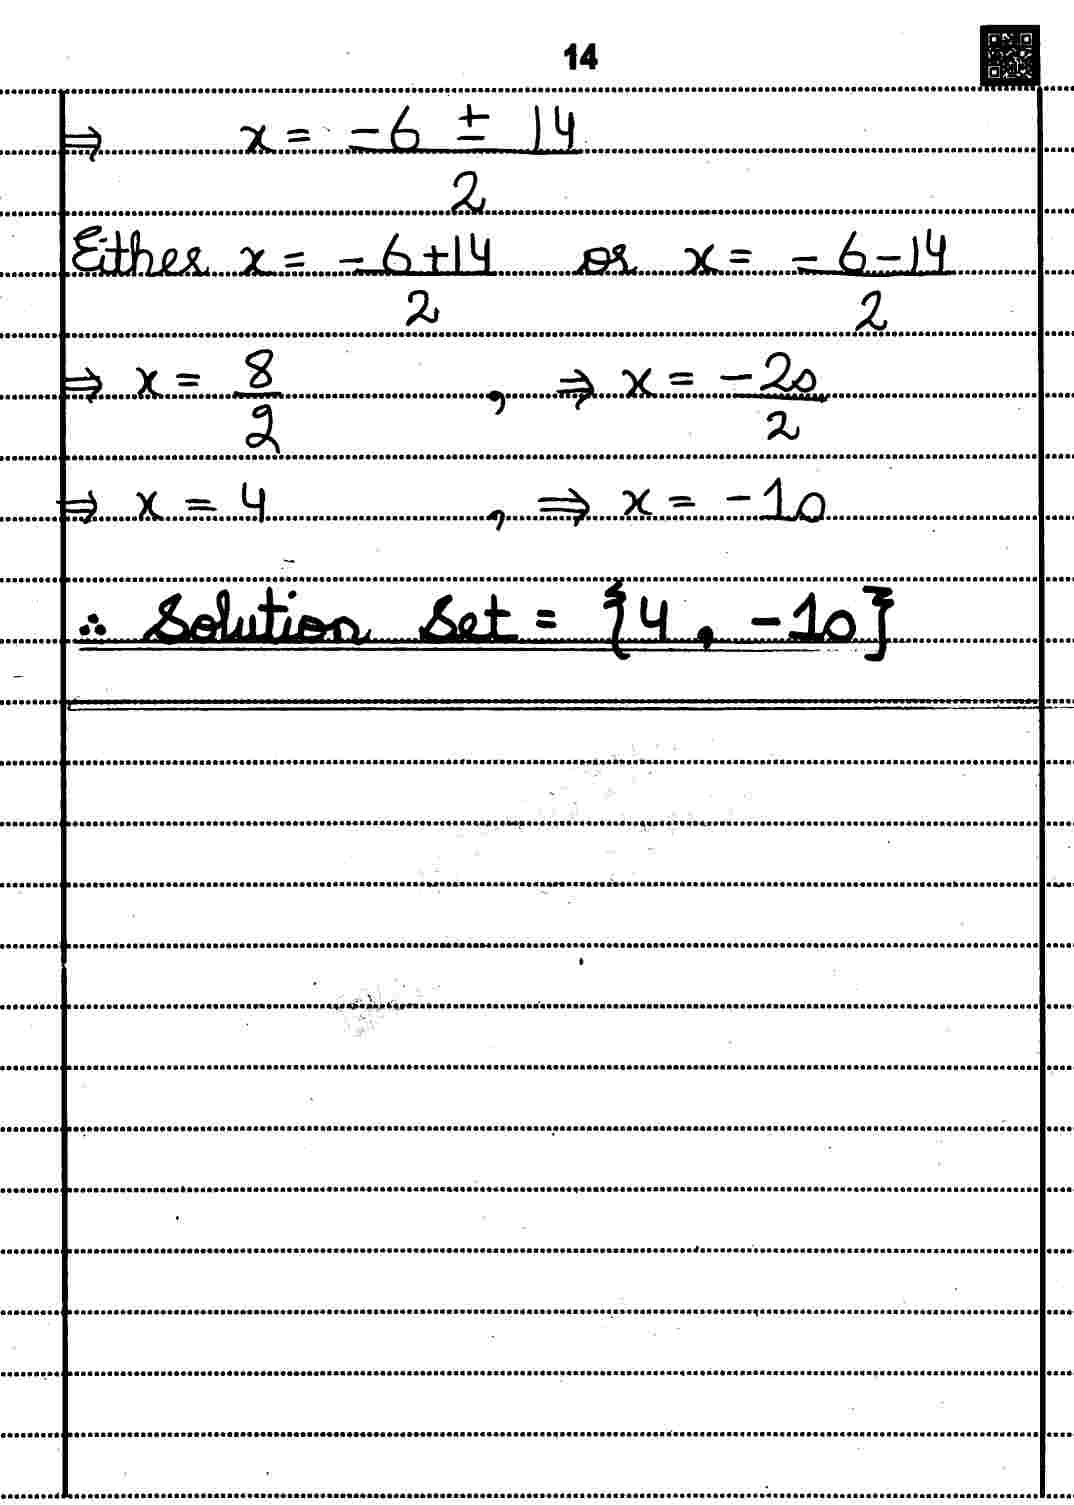 14
⇒ x = -6 ± 14 / 2
Either x = -6+14 / 2 or x = -6-14 / 2
⇒ x = 8 / 2 , ⇒ x = -20 / 2
⇒ x = 4 , ⇒ x = -10
∴ Solution Set = {4, -10}